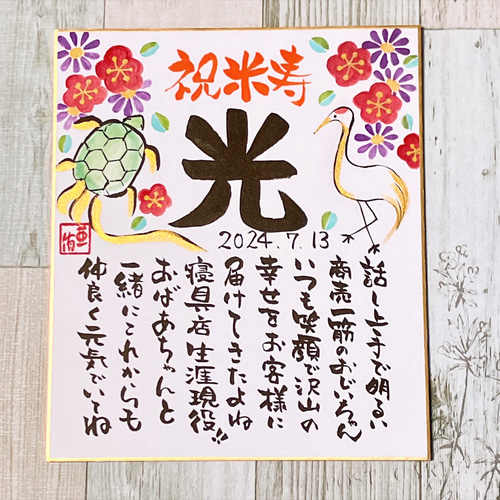 祝米寿
光
2024.7.13
話し上手で明るい
商売一筋のおじいちゃん
いつも笑顔で沢山の
幸せをお客様に
届けてきたよね
寝具店生涯現役!!
おばあちゃんと
一緒にこれからも
仲良く元気でいてね